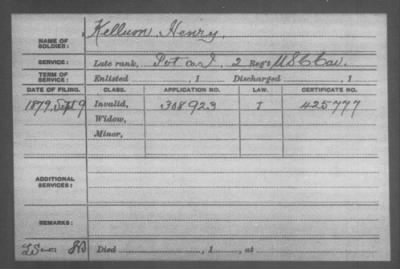 NAME OF SOLDIER: Kellum, Henry.
SERVICE: Late rank, Pvt Co I, 2 Reg't U.S.C. Cav.
TERM OF SERVICE: Enlisted , 1 Discharged , 1
DATE OF FILING. CLASS. APPLICATION NO. LAW. CERTIFICATE NO.
1879, Sept 9 Invalid, 308923 I 425777
Widow,
Minor,
ADDITIONAL SERVICES:
REMARKS:
Died , 1 , at